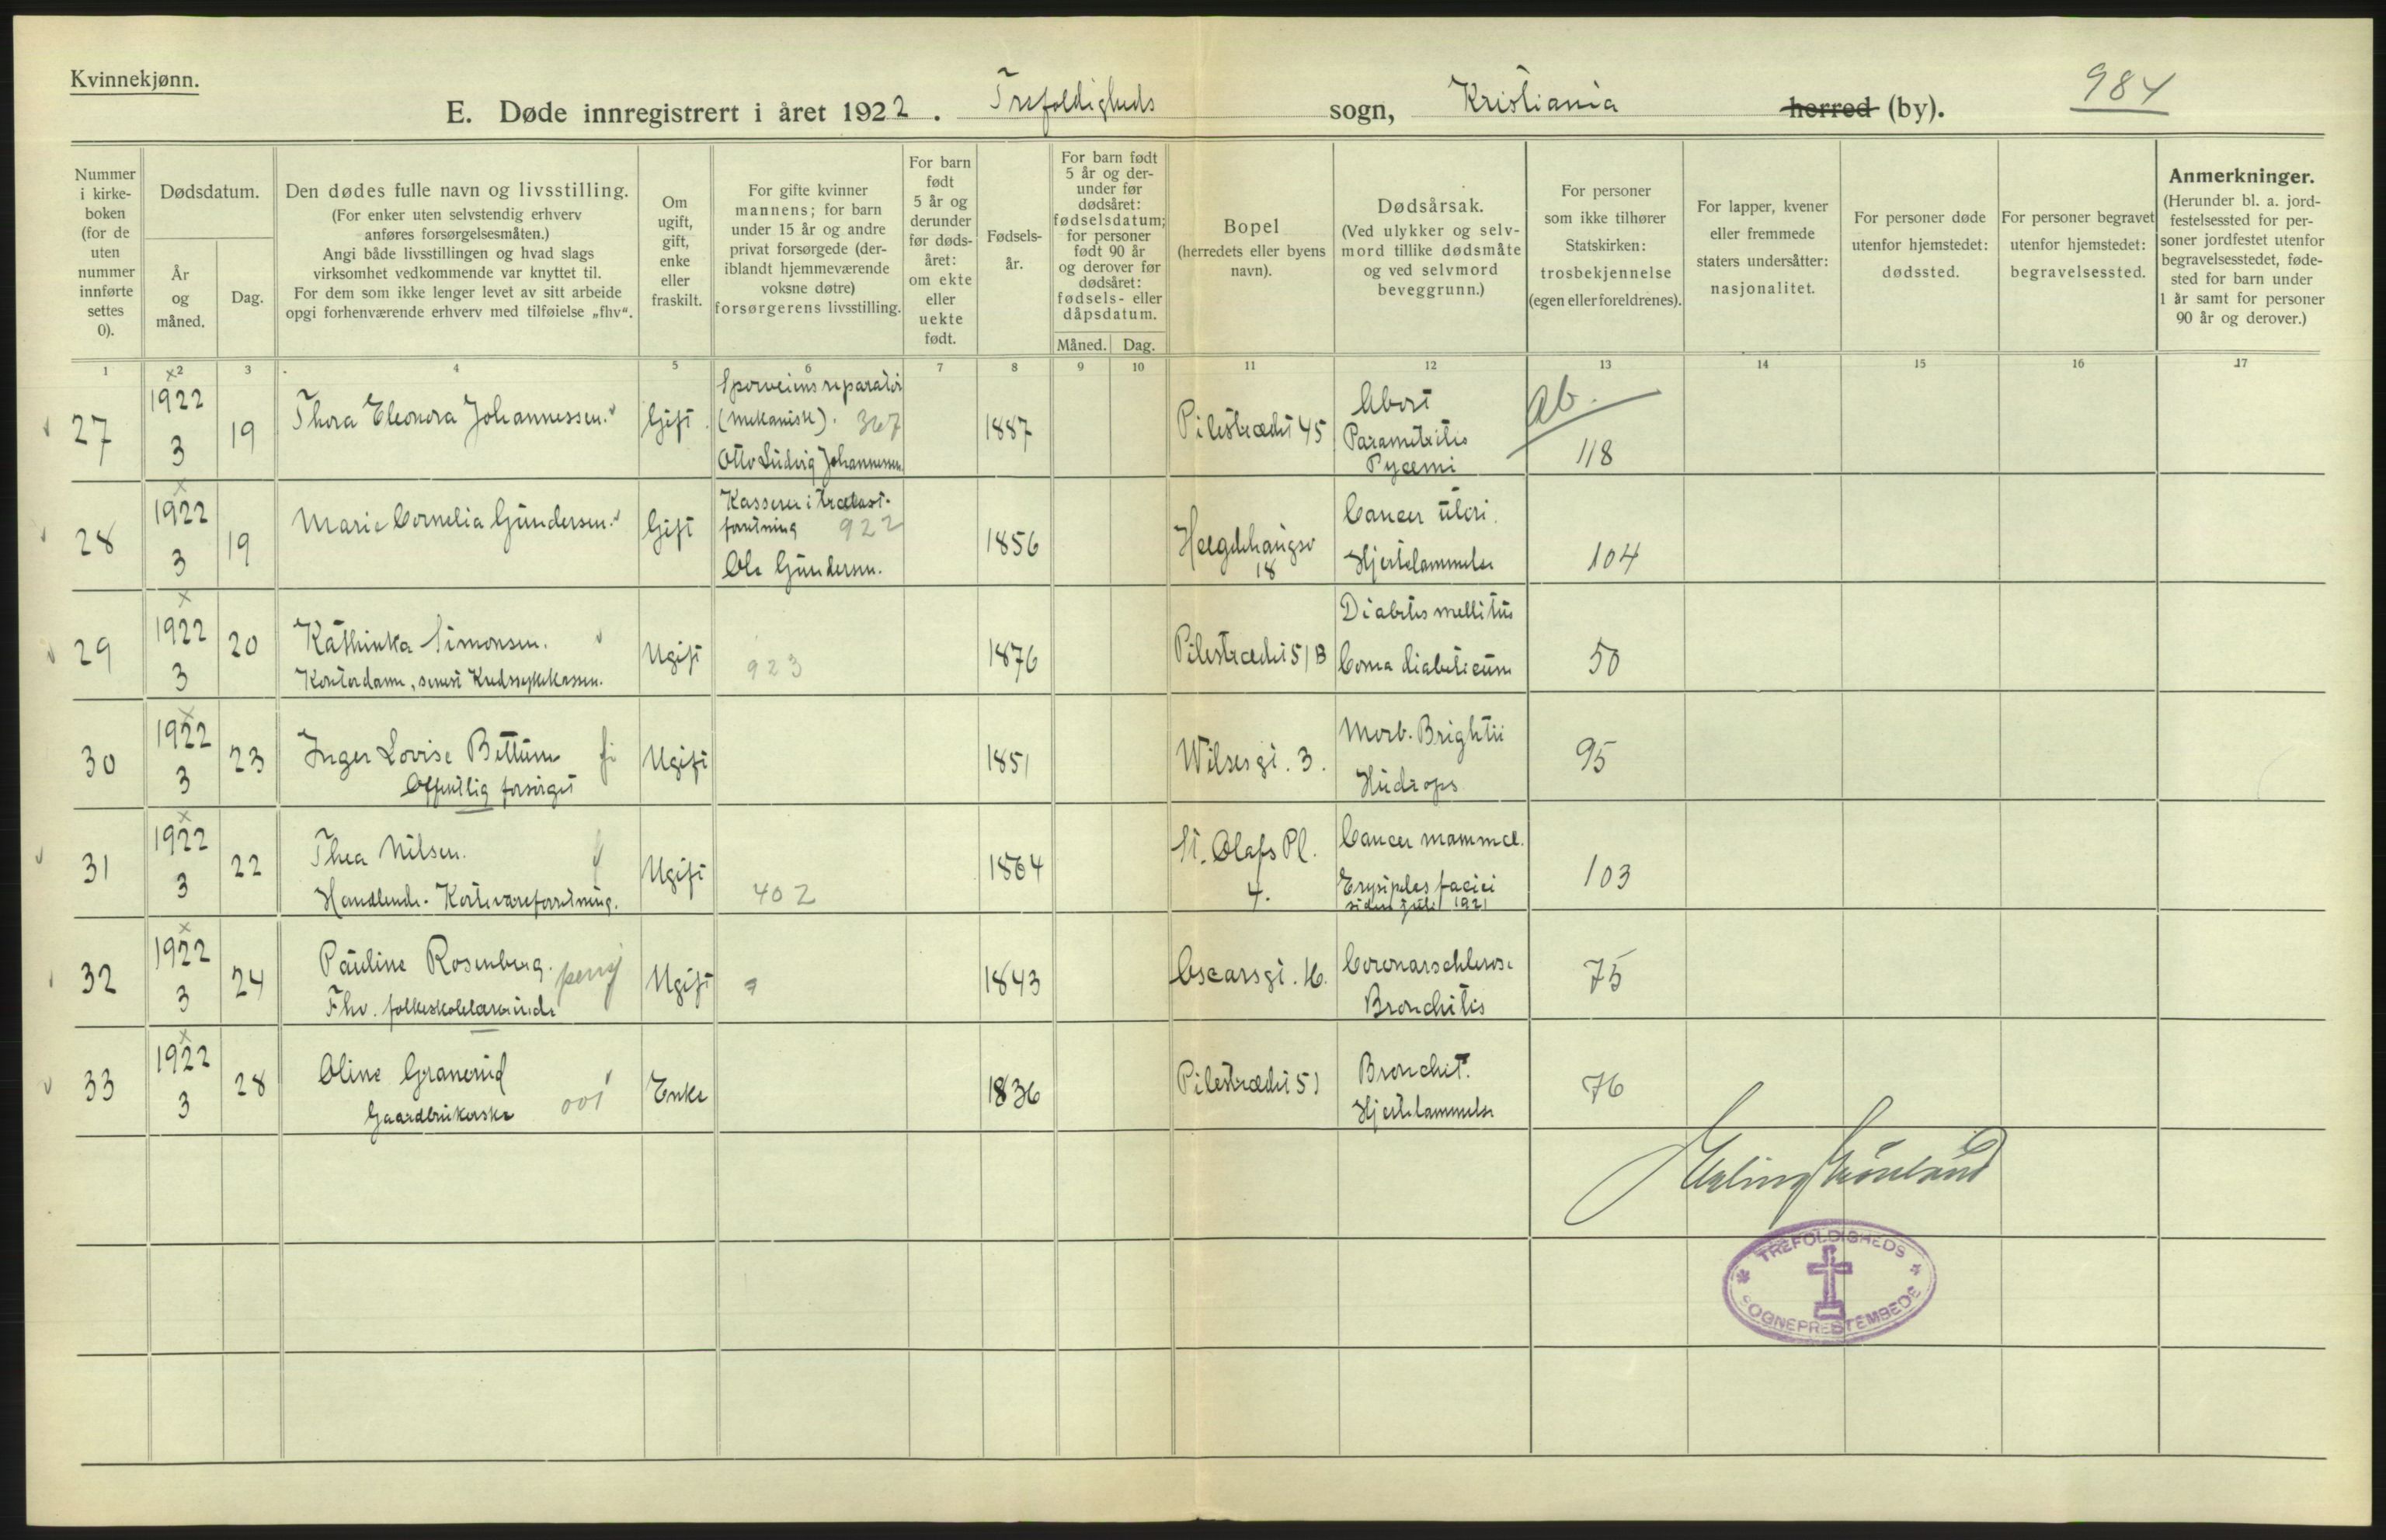 Kvinnekjønn.
984
E. Døde innregistrert i året 1922. Trefoldigheds sogn, Kristiania herred (by).
Nummer i kirke-boken (for de uten nummer innførte settes 0).
Dødsdatum.
År og måned.
Dag.
Den dødes fulle navn og livsstilling.
(For enker uten selvstendig erhverv anføres forsørgelsesmåten.)
Angi både livsstillingen og hvad slags virksomhet vedkommende var knyttet til.
For dem som ikke lenger levet av sitt arbeide opgi forhenværende erhverv med tilføielse „fhv“.
Om ugift, gift, enke eller fraskilt.
For gifte kvinner mannens; for barn under 15 år og andre privat forsørgede (der-iblandt hjemmeværende voksne døtre) forsørgerens livsstilling.
For barn født 5 år og derunder før døds-året: om ekte eller uekte født.
Fødsels-år.
For barn født 5 år og der-under før dødsåret: fødselsdatum; for personer født 90 år og derover før dødsåret: fødsels- eller dåpsdatum.
Måned. Dag.
Bopel (herredets eller byens navn).
Dødsårsak. (Ved ulykker og selv-mord tillike dødsmåte og ved selvmord beveggrunn.)
For personer som ikke tilhører Statskirken: trosbekjennelse (egen eller foreldrenes).
For lapper, kvener eller fremmede staters undersåtter: nasjonalitet.
For personer døde utenfor hjemstedet: dødssted.
For personer begravet utenfor hjemstedet: begravelsessted.
Anmerkninger. (Herunder bl. a. jord-festelsessted for per-soner jordfestet utenfor begravelsesstedet, føde-sted for barn under 1 år samt for personer 90 år og derover.)
1 2 3 4 5 6 7 8 9 10 11 12 13 14 15 16 17
27 1922 3 19 Thora Eleonora Johannessen. Gift. Sporveiensreparatør (mekaniske). 367 Otto Ludvig Johannessen 1887 Pilestrædet 45 Abort Parametritis Pyæmi Ab. 118
28 1922 3 19 Marie Cornelia Gundersen. Gift Kasserer i trælast-forretning 922 Ole Gundersen. 1856 Hægdehaugsv 18 Cancer uteri. Hjertelammelse 104
29 1922 3 20 Kathinka Simonsen. Kontordame, senest Kredssykekassen. Ugift 923 1876 Pilestrædet 51 B Diabetes mellitus Coma diabeticum 50
30 1922 3 23 Inger Lovise Bettum Offentlig forsørget fi Ugift 1851 Wilsesgt. 3. Morb. Brightii Hudrops 95
31 1922 3 22 Thea Nilsen. Handlende. Kortevareforretning. Ugift 402 1864 St. Olafs Pl. 4. Cancer mammæ. Erysipelas faciei siden juli 1921 103
32 1922 3 24 Pauline Rosenberg. Fhv. folkeskolelærerinde Ugift 1843 Oscarsgt. 16. Coronarschlerose Bronchitis 75
33 1922 3 28 Oline Granerud Gaardbrukerske 001 Enke 1836 Pilestrædet 51 Bronchit. Hjertelammelse 76
Erling Grønland
TREFOLDIGHEDS
SOGNEPRESTEMBEDE